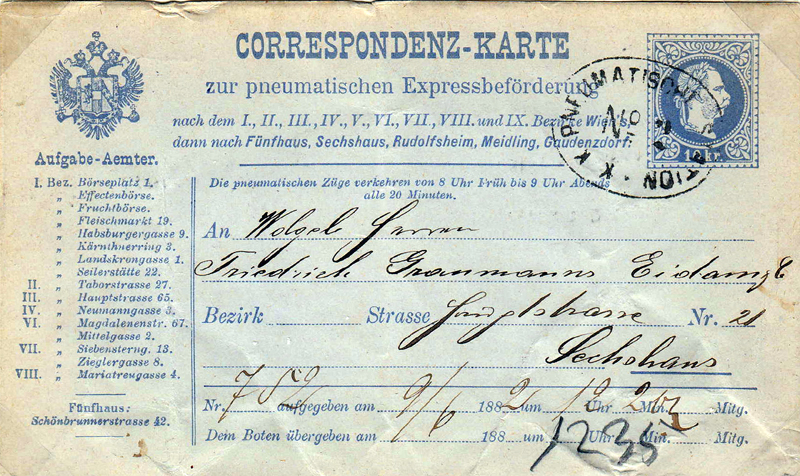 CORRESPONDENZ-KARTE
zur pneumatischen Expressbeförderung
nach dem I., II., III., IV., V., VI., VII., VIII. und IX. Bezirke Wien's,
dann nach Fünfhaus, Sechshaus, Rudolfsheim, Meidling, Gaudenzdorf.
K. K. PNEUMATISCHE
10 kr.
Aufgabe-Aemter.
I. Bez. Börseplatz 1.
„ Effectenbörse.
„ Fruchtbörse.
„ Fleischmarkt 19.
„ Habsburgergasse 9.
„ Kärnthnerring 3.
„ Landskrongasse 1.
„ Seilerstätte 22.
II. „ Taborstrasse 27.
III. „ Hauptstrasse 65.
IV. „ Neumanngasse 3.
VI. „ Magdalenenstr. 67.
„ Mittelgasse 2.
VII. „ Siebensterng. 13.
„ Zieglergasse 8.
VIII. „ Mariatreugasse 4.
Fünfhaus:
Schönbrunnerstrasse 42.
Die pneumatischen Züge verkehren von 8 Uhr Früh bis 9 Uhr Abends
alle 20 Minuten.
An Wolgeb Herren
Friedrich Graumanns Eidam
Bezirk Strasse Hauptstrasse Nr. 21
Sechshaus
Nr. 752 aufgegeben am 9/6 1882 um 12 Uhr Min. Mitg.
Dem Boten übergeben am 188 um 1235 Uhr Min. Mitg.